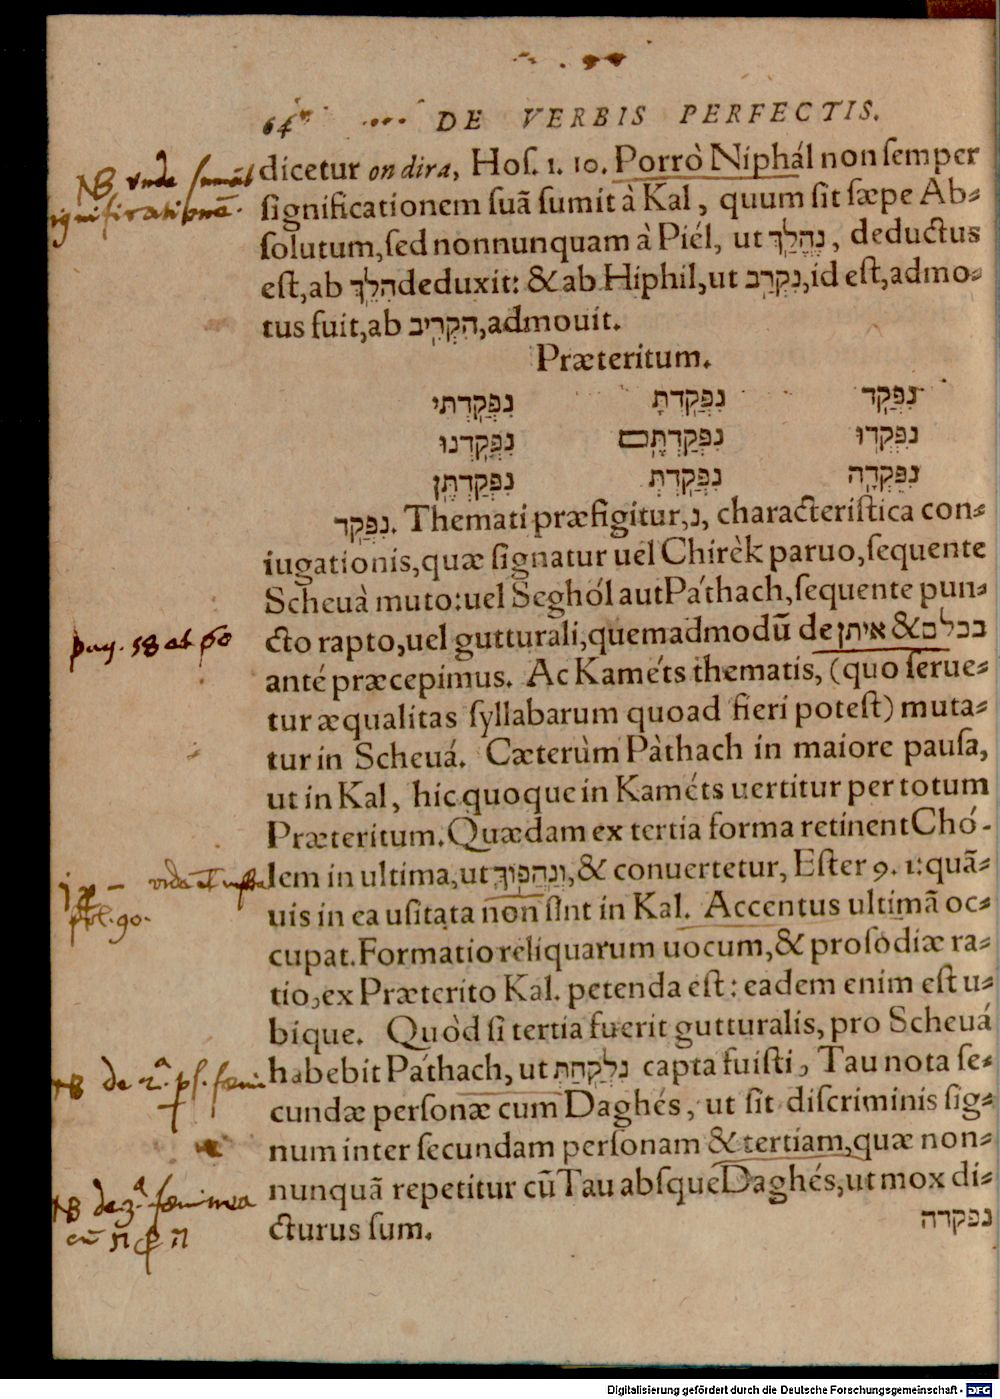 64 DE VERBIS PERFECTIS.
dicetur on dira, Hoſ. 1. 10. Porrò Niphál non ſemper
ſignificationem ſuã ſumit à Kal, quum ſit ſæpe Ab-
ſolutum, ſed nonnunquam à Piél, ut נֶהֱלַךְ, deductus
eſt, ab הִלֵךְ deduxit: & ab Hiphil, ut נִקְרַב, id eſt, admo-
tus fuit, ab הִקְרִיב, admouit.
Præteritum.
נִפְקַד נִפְקַדְתָּ נִפְקַדְתִּי
נִפְקְדוּ נִפְקַדְתֶּם נִפְקַדְנוּ
נִפְקְדָה נִפְקַדְתְּ נִפְקַדְתֶּן
נִפְקַד. Themati præfigitur, נ, characteriſtica con-
iugationis, quæ ſignatur uel Chirèk paruo, ſequente
Scheuà muto: uel Seghól aut Páthach, ſequente pun-
cto rapto, uel gutturali, quemadmodũ de איתן & בכלם
anté præcepimus. Ac Kaméts thematis, (quo ſerue-
tur æqualitas ſyllabarum quoad fieri poteſt) muta-
tur in Scheuá. Cæterùm Pàthach in maiore pauſa,
ut in Kal, hic quoque in Kaméts uertitur per totum
Præteritum. Quædam ex tertia forma retinent Chó-
lem in ultima, ut וְנַהֲפוֹךְ, & conuertetur, Eſter 9. 1: quã-
uis in ea uſitata non ſint in Kal. Accentus ultimã oc-
cupat. Formatio reliquarum uocum, & proſodiæ ra-
tio, ex Præterito Kal. petenda eſt: eadem enim eſt u-
bique. Quòd ſi tertia fuerit gutturalis, pro Scheuá
habebit Páthach, ut נִלְקַחַת capta fuiſti, Tau nota ſe-
cundæ perſonæ cum Daghés, ut ſit diſcriminis ſig-
num inter ſecundam perſonam & tertiam, quæ non-
nunquã repetitur cũ Tau abſque Daghés, ut mox di-
cturus ſum.
נפקדה
NB unde ſumãt
ſignificationẽ.
pag. 58 et 60
vide et infra
fol. 90.
NB de 2.ª pſ. fœmi
NB de 3.ª fœminea
cũ ת ꝓ ה
Digitalisierung gefördert durch die Deutsche Forschungsgemeinschaft - DFG